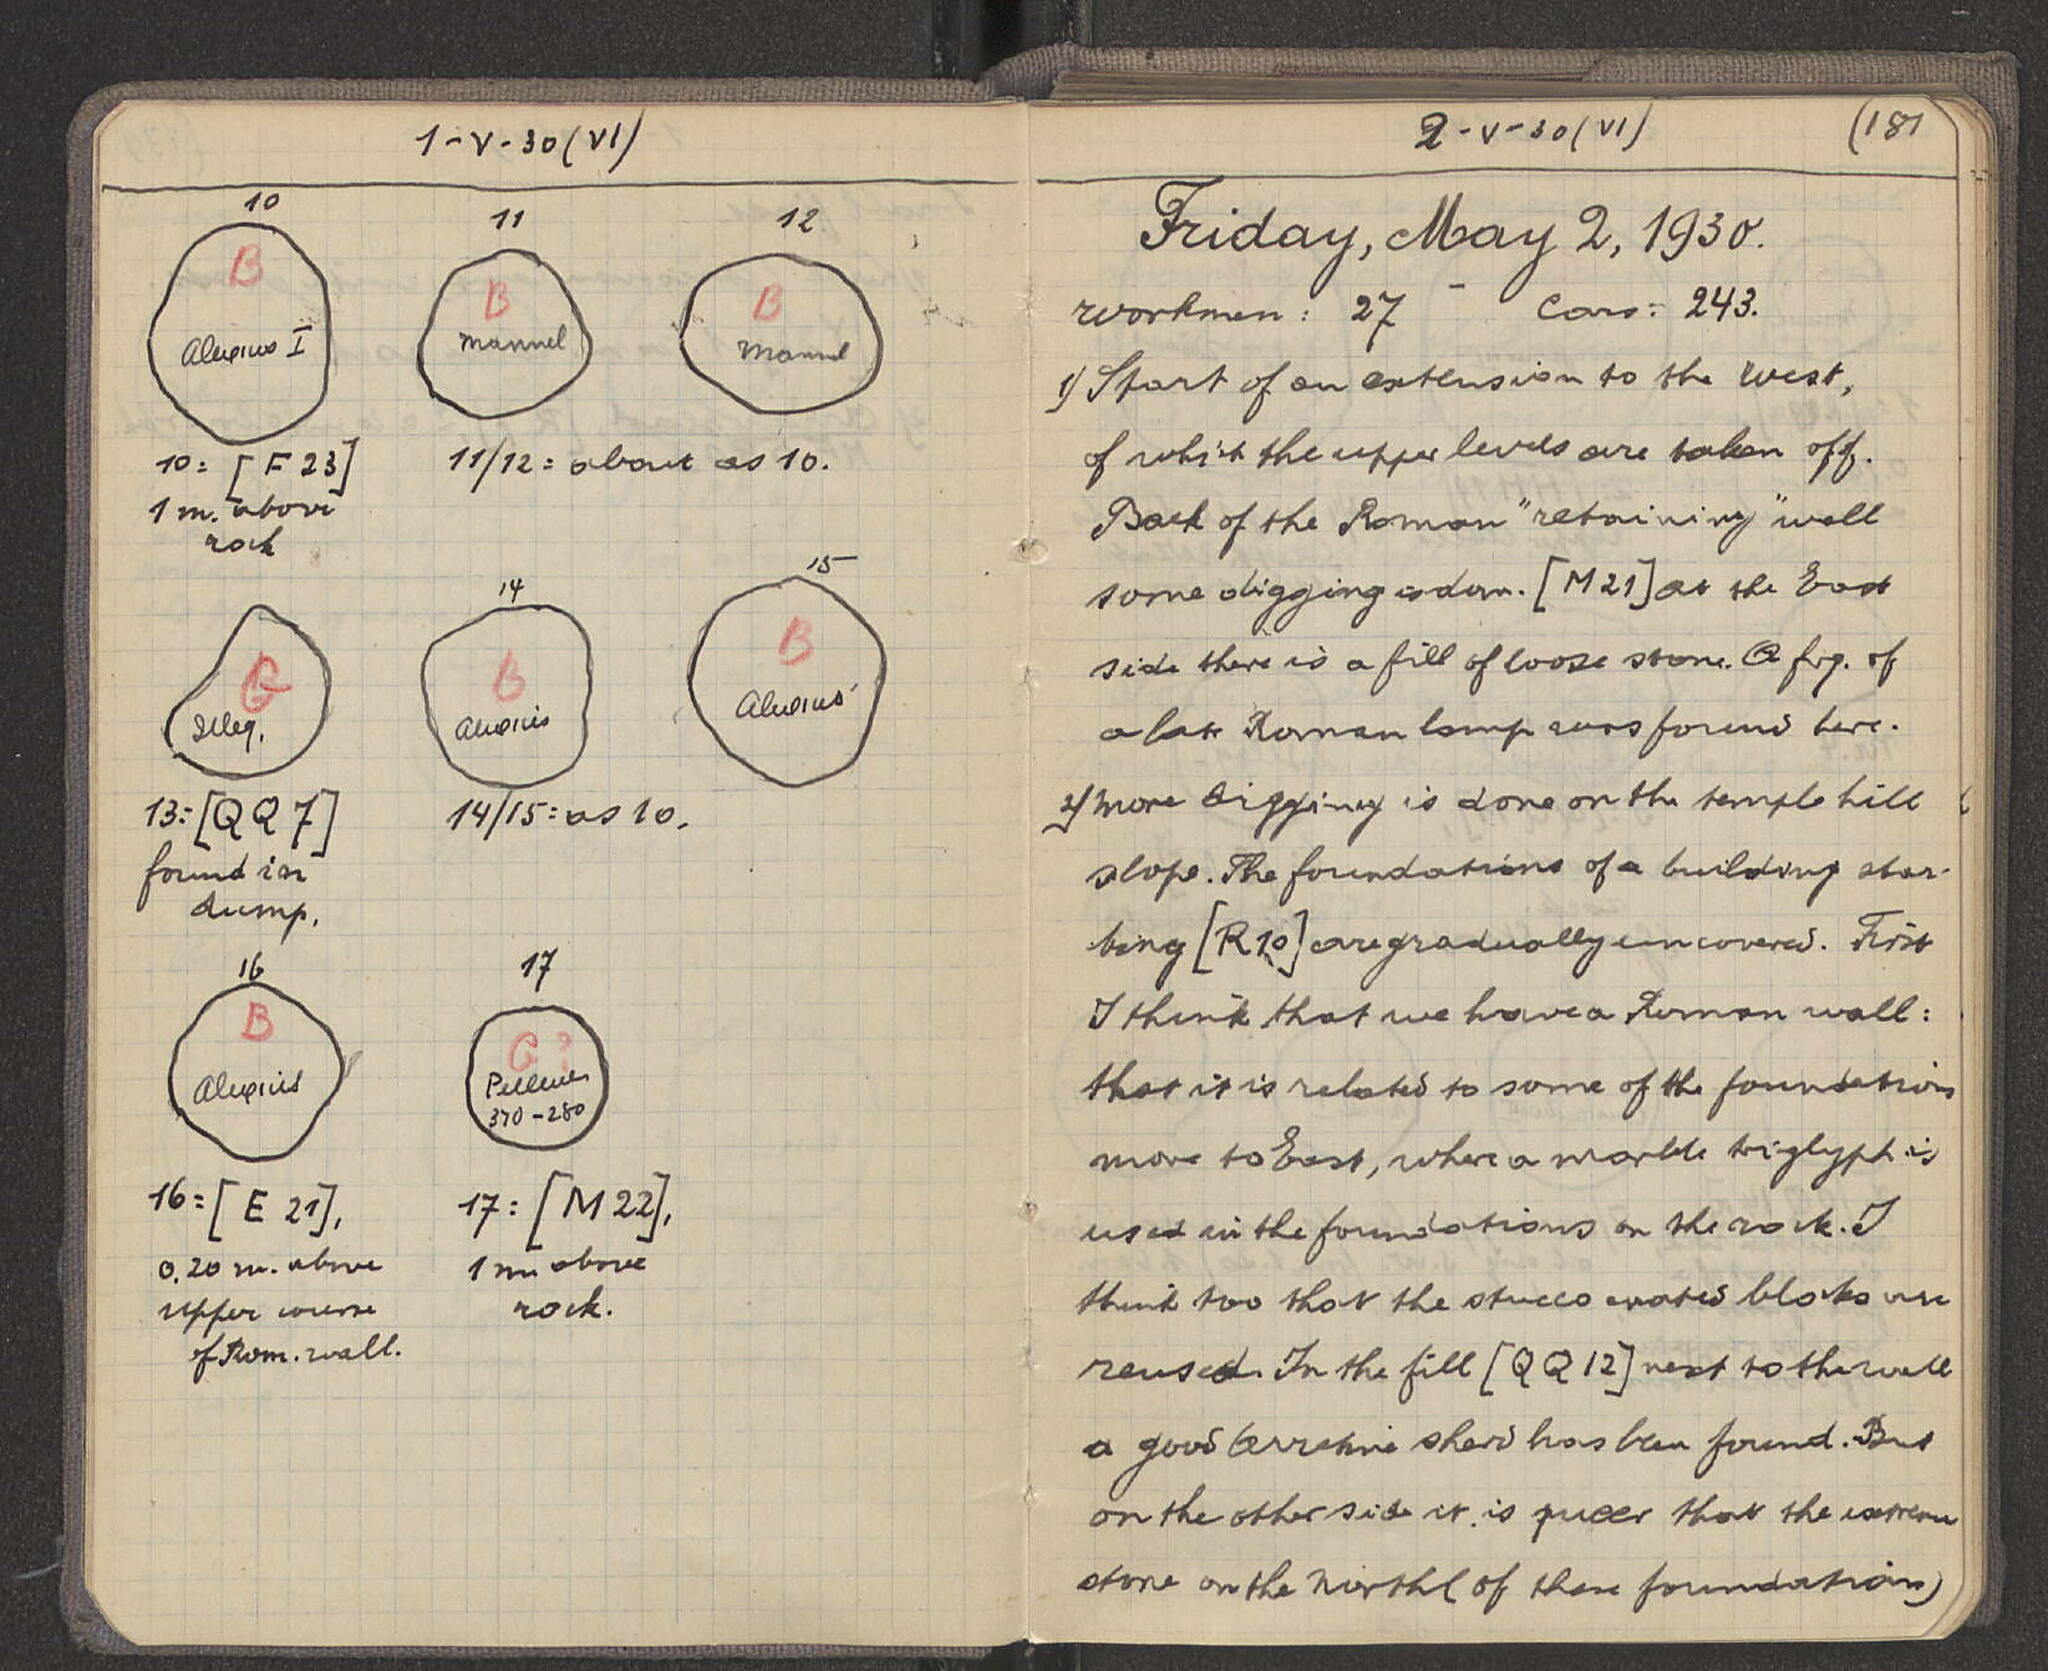 1-V-30(VI)
10
11
12
B
Alexius I
B
Manuel
B
Manuel
10= [F 23]
1 m. above
rock
11/12 = about as 10.
14
15
G
Illeg.
B
Alexius
B
Alexius
13=[QQ 7]
found in
dump.
14/15= as 10.
16
17
B
Alexius
G?
Pellene
370-280
16=[E 21],
0.20 m. above
upper course
of Rom. wall.
17= [M 22],
1 m. above
rock.
2-V-30(VI)
(181
Friday, May 2, 1930.
Workmen: 27 - Cars: 243.
1) Start of an extension to the West,
of which the upper levels are taken off.
Back of the Roman "retaining" wall
some digging is done. [M 21] at the East
side there is a fill of loose stone. A frg. of
a late Roman lamp was found here.
2) More digging is done on the temple hill
slope. The foundations of a building star-
ting [R 10] are gradually uncovered. First
I think that we have a Roman wall:
that it is related to some of the foundations
more to East, where a marble triglyph is
used in the foundations on the rock. I
think too that the stucco coated blocks are
reused. In the fill [QQ 12] next to the wall
a good Arretine sherd has been found. But
on the other side it is queer that the extreme
stone on the North (of these foundations)